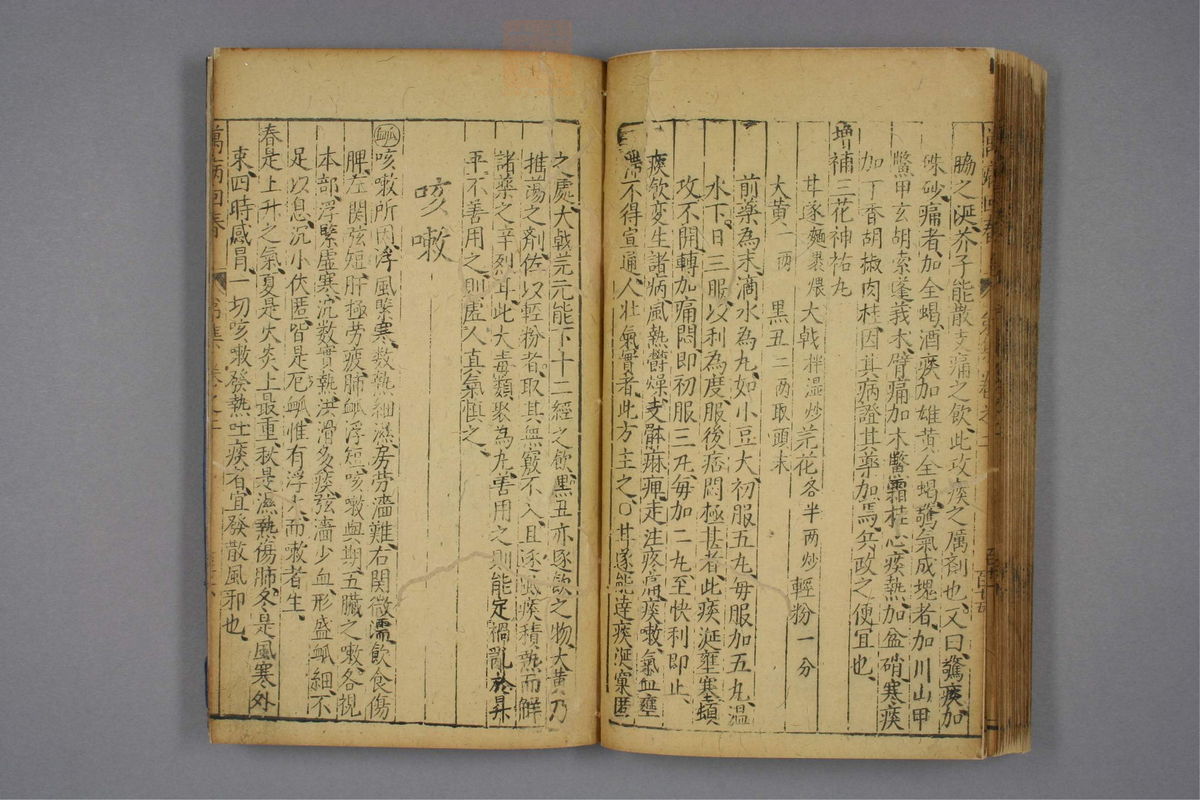 脇之涎芥子能散支痛之飲此攻痰之厲劑也又曰驚痰加
硃砂痛者加全蝎酒痰加雄黃全蝎驚氣成塊者加川山甲
鱉甲玄胡索蓬莪朮臂痛加木鱉霜桂心痰熱加盆硝寒痰
加丁香胡椒肉桂因其病證其藥加焉兵政之便宜也
增補三花神祐丸
甘遂麵裹煨 大戟拌湿炒 芫花各半两炒 輕粉一分
大黃一两 黑丑二两取頭末
前藥為末滴水為丸如小豆大初服五丸每服加五丸温
水下日三服以利為度服後痞悶極甚者此痰涎壅塞頓
攻不開轉加痛悶即初服三丸每加二丸至快利即止
痰飲变生諸病風熱欝燥支體麻痺走注疼痛痰嗽氣血壅
滯不得宣通人壯氣實者此方主之○甘遂能達痰涎窠匿
之處大戟芫元能下十二經之飲黑丑亦逐飲之物大黃乃
推蕩之劑佐以輕粉者取其無竅不入且逐風痰積熱而鮮
諸藥之辛烈耳此大毒類聚為丸善用之則能定禍亂於昇
平不善用之則虛人真氣慎之
咳嗽
脈 咳嗽所因浮風緊寒数熱細濕房劳濇難右関微濡飲食傷
脾左関弦短肝極劳疲肺脈浮短咳嗽與期五臟之嗽各視
本部浮緊虛寒沉数實熱洪滑多痰弦濇少血形盛脈細不
足以息沉小伏匿皆是厄脈惟有浮大而嗽者生
春是上升之氣夏是火炎上最重秋是濕熱傷肺冬是風寒外
束四時感冒一切咳嗽發熱吐痰者宜發散風邪也
萬病回春